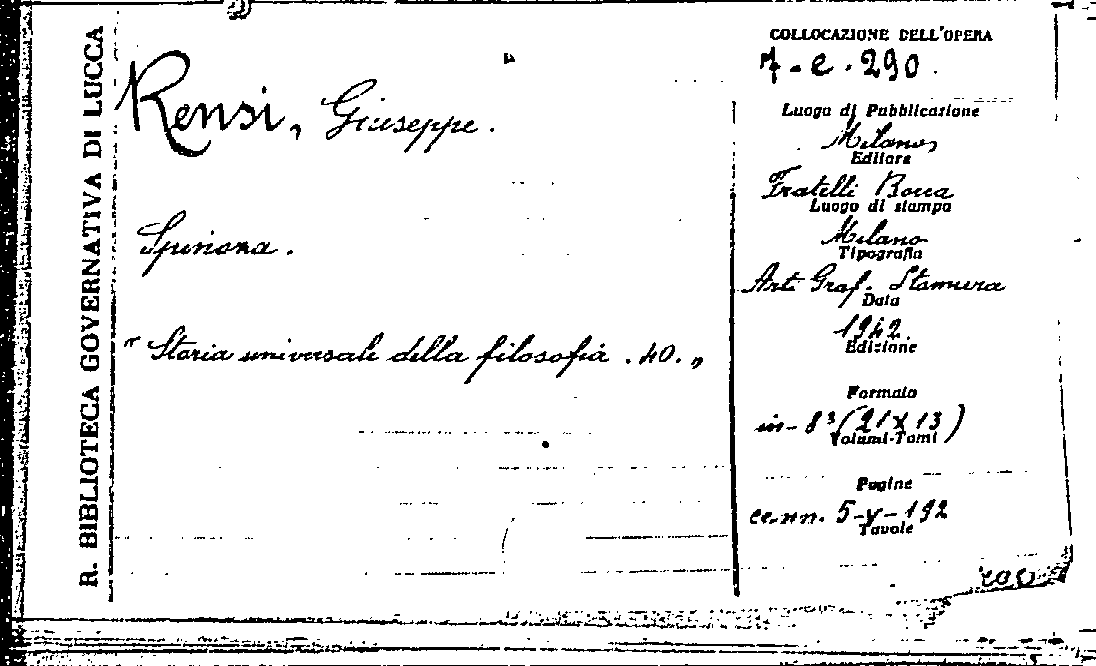 R. BIBLIOTECA GOVERNATIVA DI LUCCA
Rensi, Giuseppe.
Spinoza.
"Storia universale della filosofia. 40.„
COLLOCAZIONE DELL'OPERA
7-e.290.
Luogo di Pubblicazione
Milano,
Editore
Fratelli Bocca
Luogo di stampa
Milano
Tipografia
Arti Graf. Stamera
Data
1942.
Edizione
Formato
in-8° (21x13)
Volumi-Tomi
Pagine
cc.nn. 5-V-192
Tavole